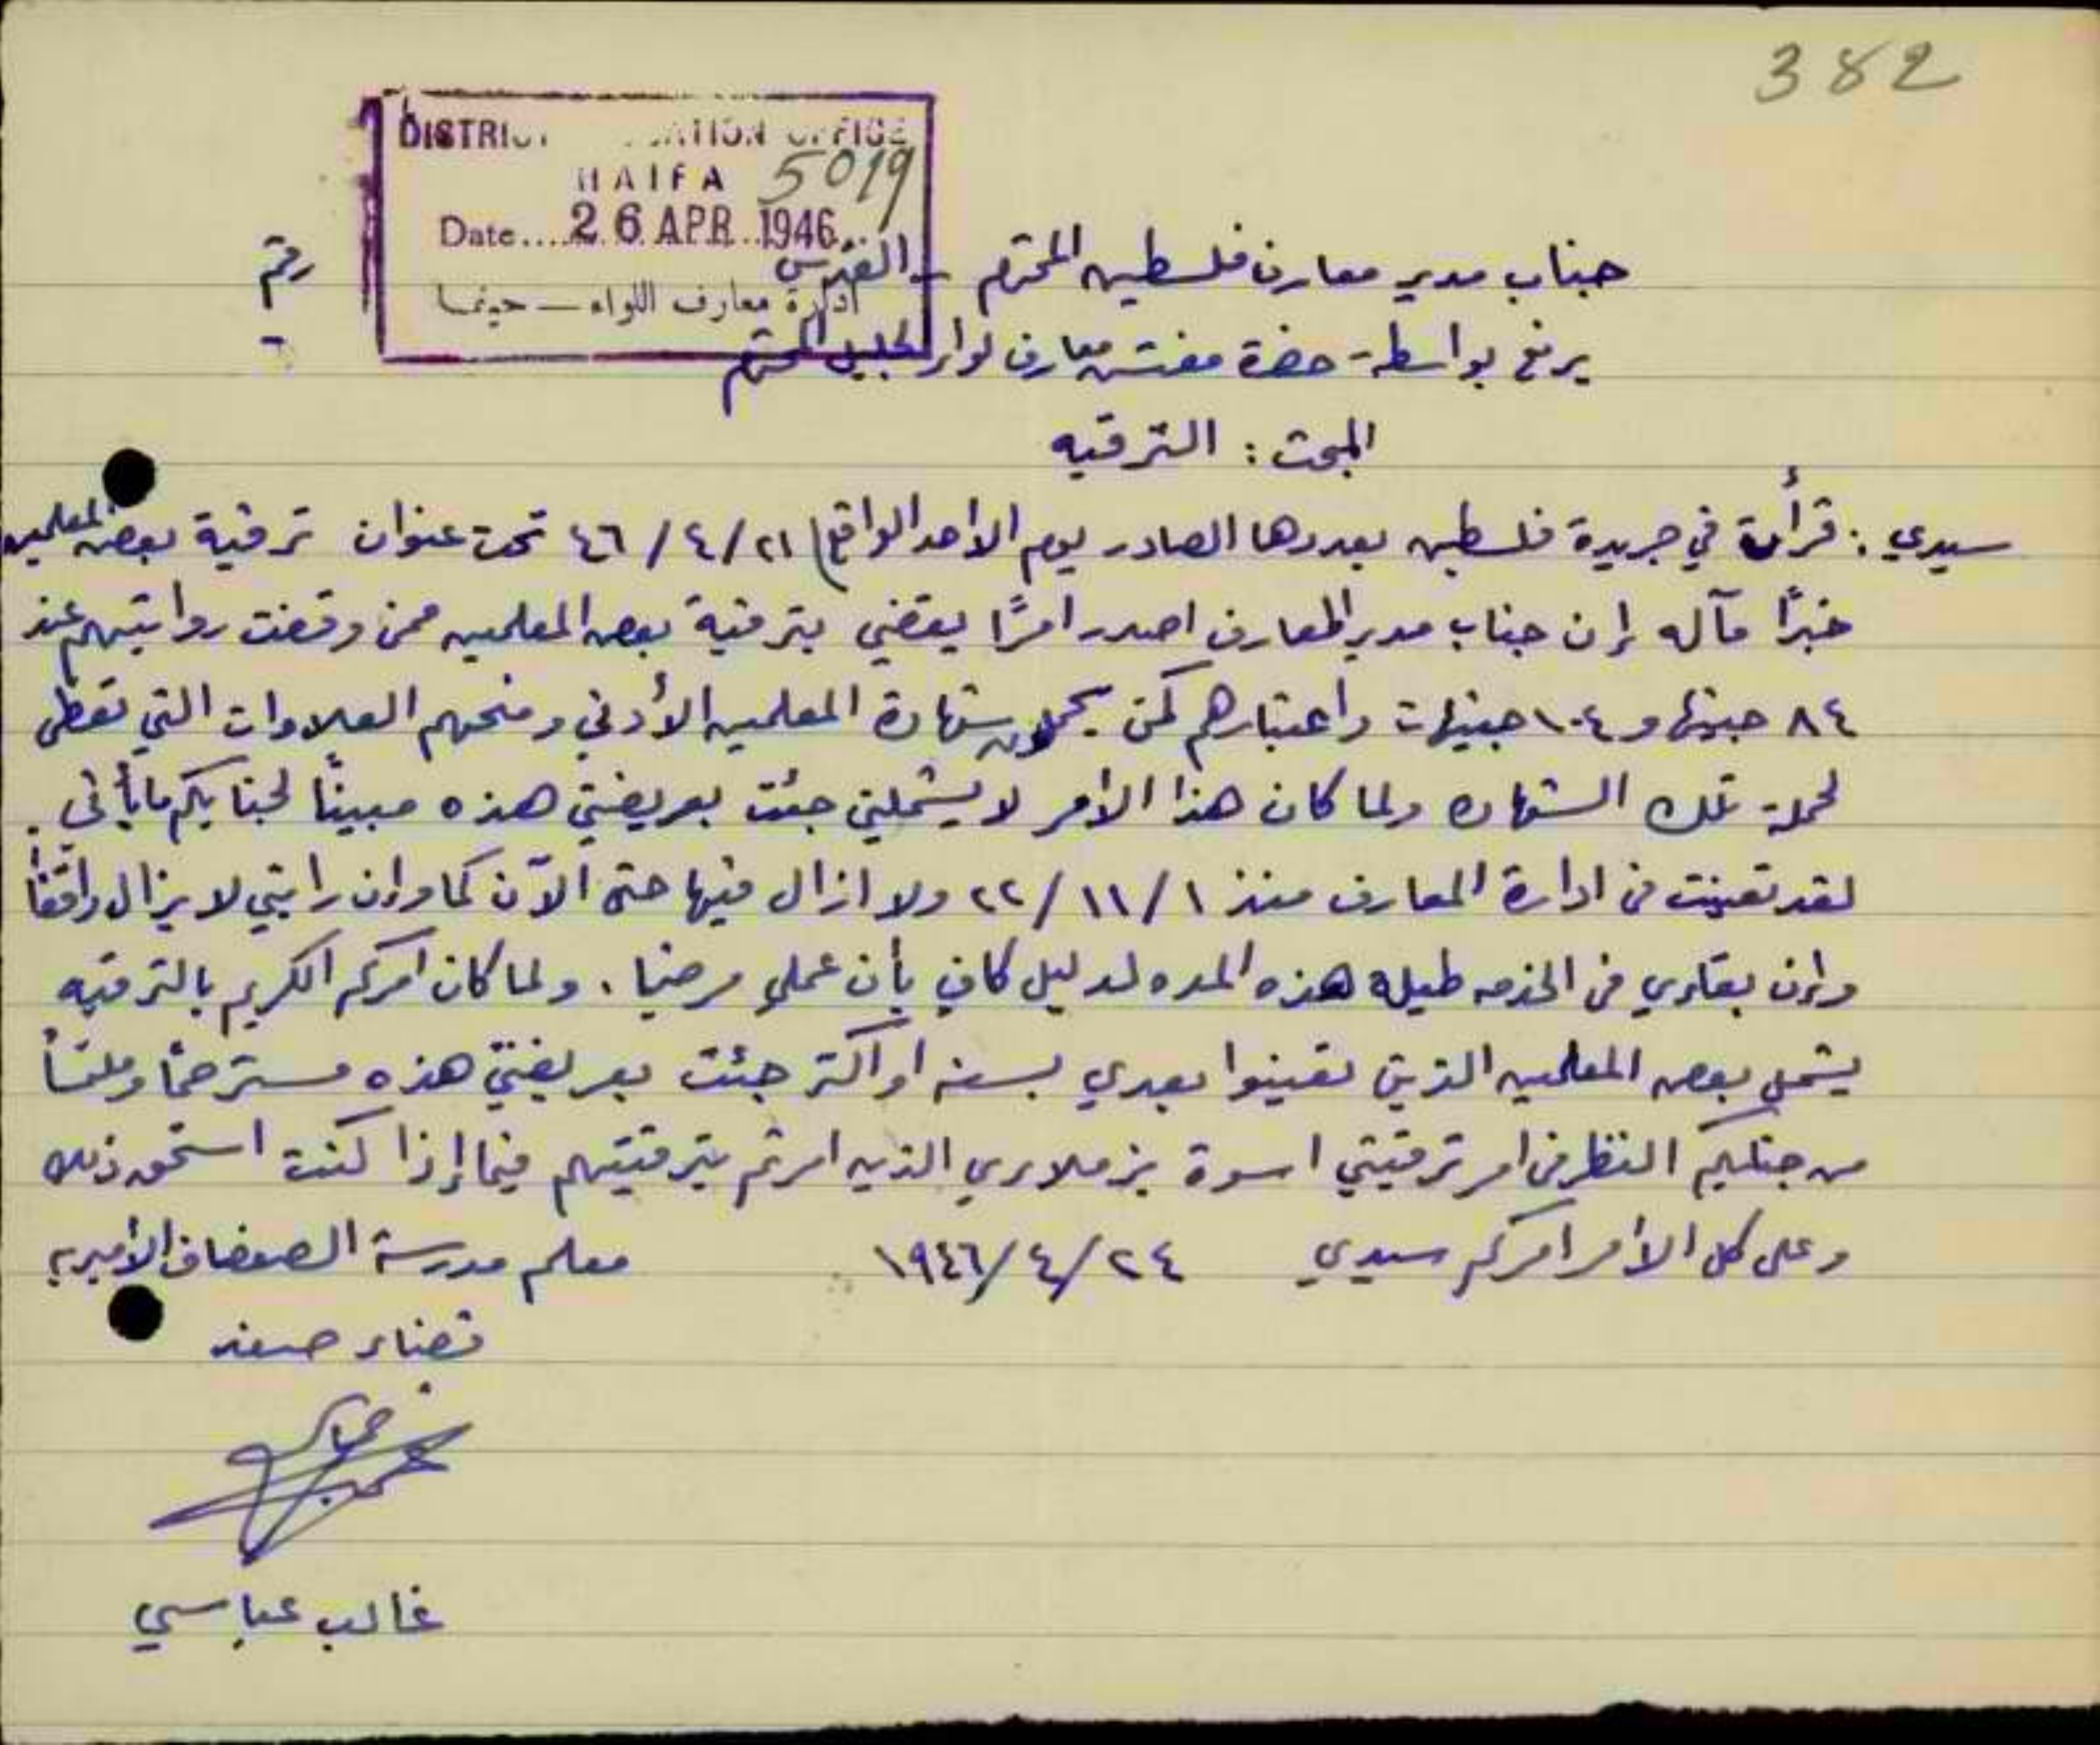 382
DISTRICT EDUCATION OFFICE
HAIFA 5019
Date.... 26 APR. 1946
ادارة معارف اللواء – حيفا
رقم
جناب مدير معارف فلسطين المحترم – القدس
يرفع بواسطة حضرة مفتش معارف لواء الجليل المحترم
المبحث : الترقيه
سيدي : قرأت في جريدة فلسطين بعددها الصادر يوم الاحد الواقع ٢١/٤/٤٦ تحت عنوان ترقية بعض المعلمين
خبرًا مآله إن جناب مدير المعارف اصدر امرًا يقضي بترقية بعض المعلمين ممن وقفت رواتبهم عند
٨٤ جنيها و ١٠٤ جنيهات واعتبارهم كمن يحملون شهادة المعلمين الأدنى ومنحهم العلاوات التي تعطى
لحملة تلك الشهاده ولما كان هذا الأمر لا يشملني جئت بعريضتي هذه مبينًا لجنابكم ما يأتي .
لقد تعينت في ادارة المعارف منذ ١/١١/٢٢ ولا ازال فيها حتى الآن كما وإن راتبي لا يزال واقفًا
وإن بقاءي في الخدمه طيلة هذه المده لدليل كافي بأن عملي مرضيا . ولما كان امركم الكريم بالترقيه
يشمل بعض المعلمين الذين تعينوا بعدي بسنه او اكثر جئت بعريضتي هذه مسترحمًا وملتمسًا
من جنابكم النظر في امر ترقيتي اسوة بزملاءي الذين امرتم بترقيتهم فيما إذا كنت استحق ذلك
وعلى كل الأمر امركم سيدي ٢٤/٤/١٩٤٦ معلم مدرسة الصفصاف الأميريه
قضاء صفد
غالب عباسي